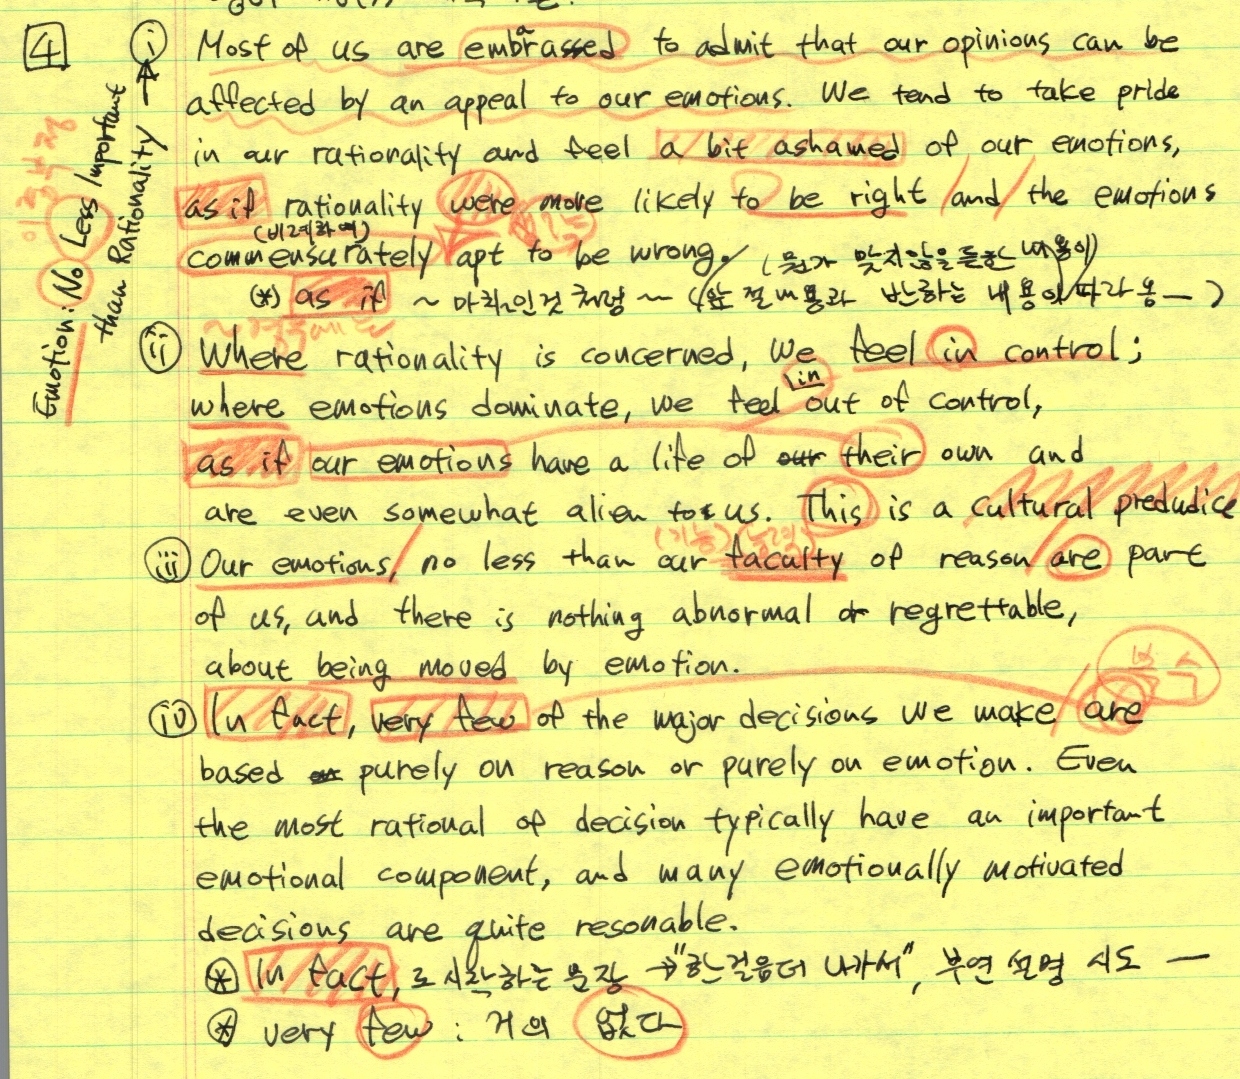 4
i Most of us are embrassed to admit that our opinions can be
a
affected by an appeal to our emotions. We tend to take pride
in our rationality and feel a bit ashamed of our emotions,
as if rationality were more likely to be right / and / the emotions
(비례하여)
commensurately apt to be wrong. / (뭔가 맞지않을 듯한 내용이)
(*) as if ~ 마치 ~인것 처럼 ~ (앞 절 내용과 반하는 내용이 따라 옴 — )
ii Where rationality is concerned, we feel in control;
in
where emotions dominate, we feel out of control,
as if our emotions have a life of their own and
are even somewhat alien to us. This is a cultural predudice
(기능) (능력)
iii Our emotions, / no less than our faculty of reason / are part
of us, and there is nothing abnormal or regrettable,
about being moved by emotion.
iv In fact, very few of the major decisions we make / are
based purely on reason or purely on emotion. Even
the most rational of decision typically have an important
emotional component, and many emotionally motivated
decisions are quite resonable.
* In fact, 로 시작하는 문장 → "한걸음 더 나가서", 부연 설명 시도 —
* very few : 거의 없다
Emotion: No Less Important
than Rationality →